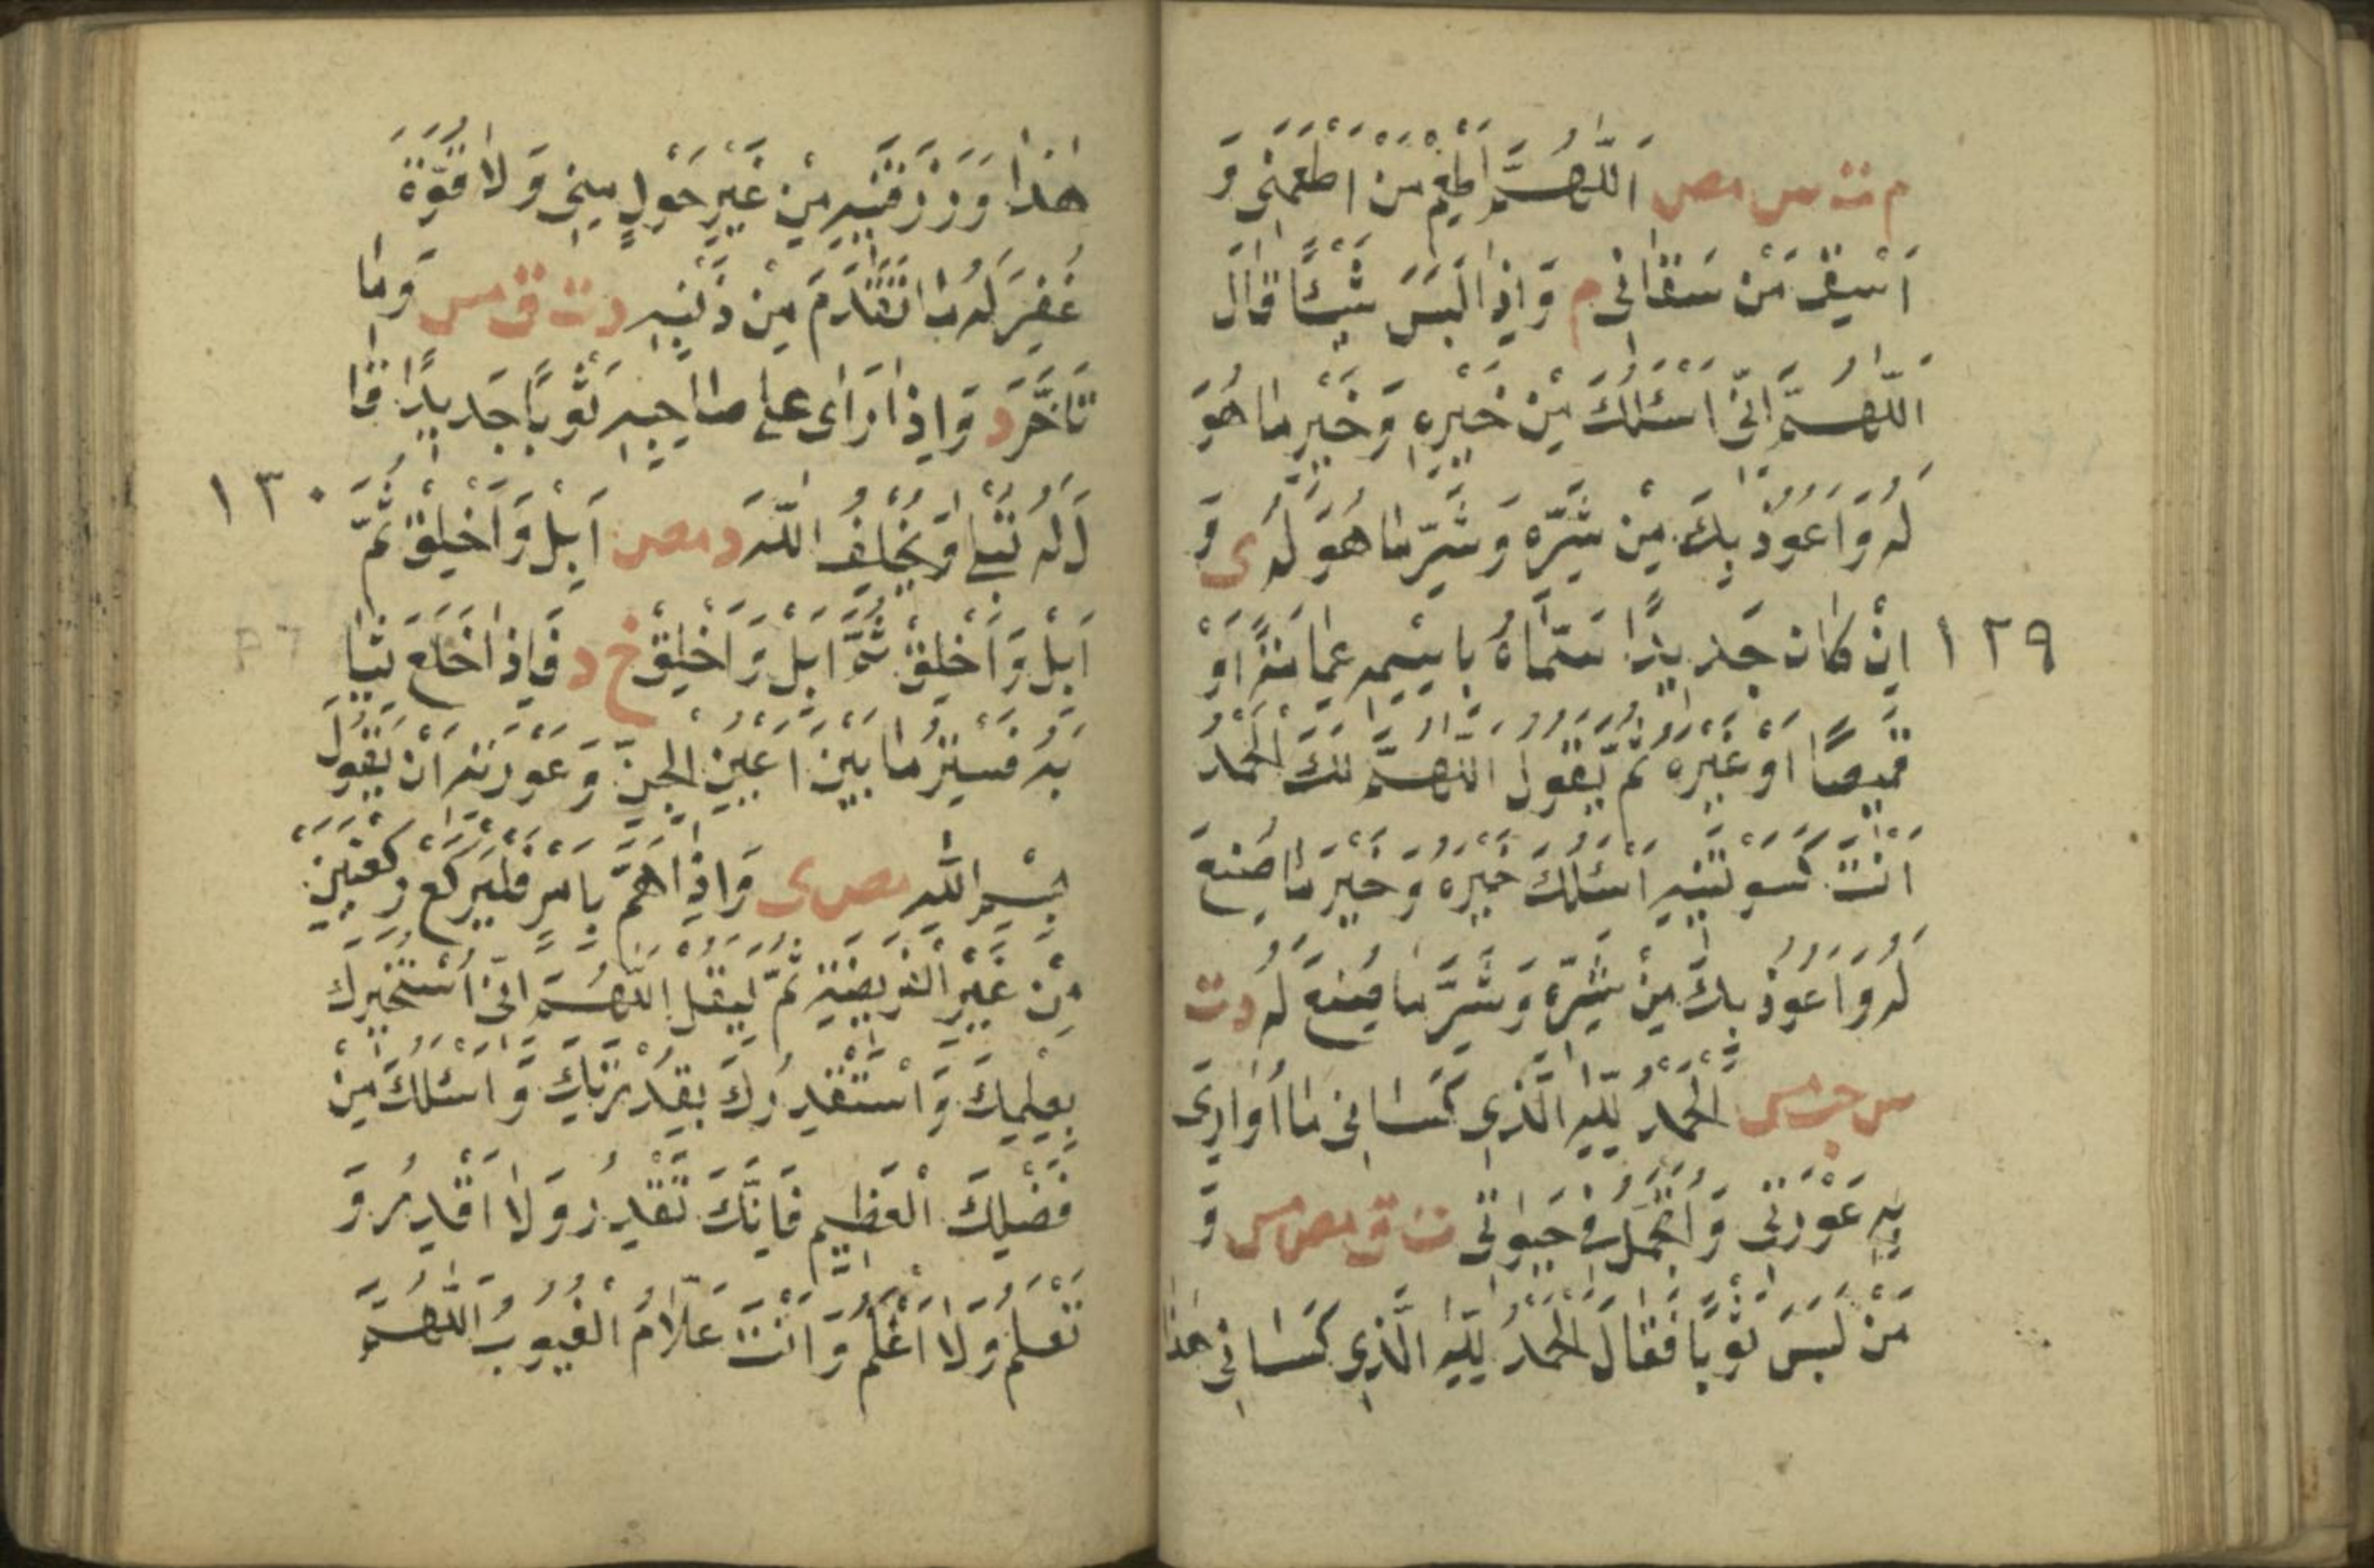 م ت س مص اَللّٰهُمَّ اَطْعِمْ مَنْ اَطْعَمَنِى وَ
اَسْقِ مَنْ سَقَانِى م وَاِذَا لَبِسَ شَيْئًا قَالَ
اَللّٰهُمَّ اِنِّى اَسْئَلُكَ مِنْ خَيْرِهٖ وَخَيْرِ مَا هُوَ
لَهُ وَاَعُوْذُ بِكَ مِنْ شَرِّهٖ وَشَرِّ مَا هُوَ لَهُ ى وَ
١٢٩ اِنْ كَانَ جَدِيْدًا سَمَّاهُ بِاسْمِهٖ عِمَامَةً اَوْ
قَمِيْصًا اَوْ غَيْرَهُ ثُمَّ يَقُوْلُ اَللّٰهُمَّ لَكَ الْحَمْدُ
اَنْتَ كَسَوْتَنِيْهِ اَسْئَلُكَ خَيْرَهُ وَخَيْرَ مَا صُنِعَ
لَهُ وَاَعُوْذُ بِكَ مِنْ شَرِّهٖ وَشَرِّ مَا صُنِعَ لَهُ د ت
س حب مس اَلْحَمْدُ لِلّٰهِ الَّذِى كَسَانِى مَا اُوَارِى
بِهٖ عَوْرَتِى وَاَتَجَمَّلُ بِهٖ فِى حَيٰوتِى ت ق مص مس وَ
مَنْ لَبِسَ ثَوْبًا فَقَالَ اَلْحَمْدُ لِلّٰهِ الَّذِى كَسَانِى هٰذَا
هٰذَا وَرَزَقَنِيْهِ مِنْ غَيْرِ حَوْلٍ مِنِّى وَلَا قُوَّةٍ
غُفِرَ لَهُ مَا تَقَدَّمَ مِنْ ذَنْبِهٖ د ت ق مس وَمَا
تَاَخَّرَ د وَاِذَا رَاٰى عَلٰى صَاحِبِهٖ ثَوْبًا جَدِيْدًا قَا
لَ لَهُ تُبْلِى وَيُخْلِفُ اللّٰهُ د مص اَبْلِ وَاَخْلِقْ ثُمَّ ١٣٠
اَبْلِ وَاَخْلِقْ ثُمَّ اَبْلِ وَاَخْلِقْ خ د فَاِذَا خَلَعَ ثِيَا
بَهُ فَسِتْرُ مَا بَيْنَ اَعْيُنِ الْجِنِّ وَعَوْرَتِهٖ اَنْ يَقُوْلَ
بِسْمِ اللّٰهِ مص ى وَاِذَا هَمَّ بِاَمْرٍ فَلْيَرْكَعْ رَكْعَتَيْنِ
مِنْ غَيْرِ الْفَرِيْضَةِ ثُمَّ لْيَقُلْ اَللّٰهُمَّ اِنِّى اَسْتَخِيْرُكَ
بِعِلْمِكَ وَاَسْتَقْدِرُكَ بِقُدْرَتِكَ وَاَسْئَلُكَ مِنْ
فَضْلِكَ الْعَظِيْمِ فَاِنَّكَ تَقْدِرُ وَلَا اَقْدِرُ وَ
تَعْلَمُ وَلَا اَعْلَمُ وَاَنْتَ عَلَّامُ الْغُيُوْبِ اَللّٰهُمَّ